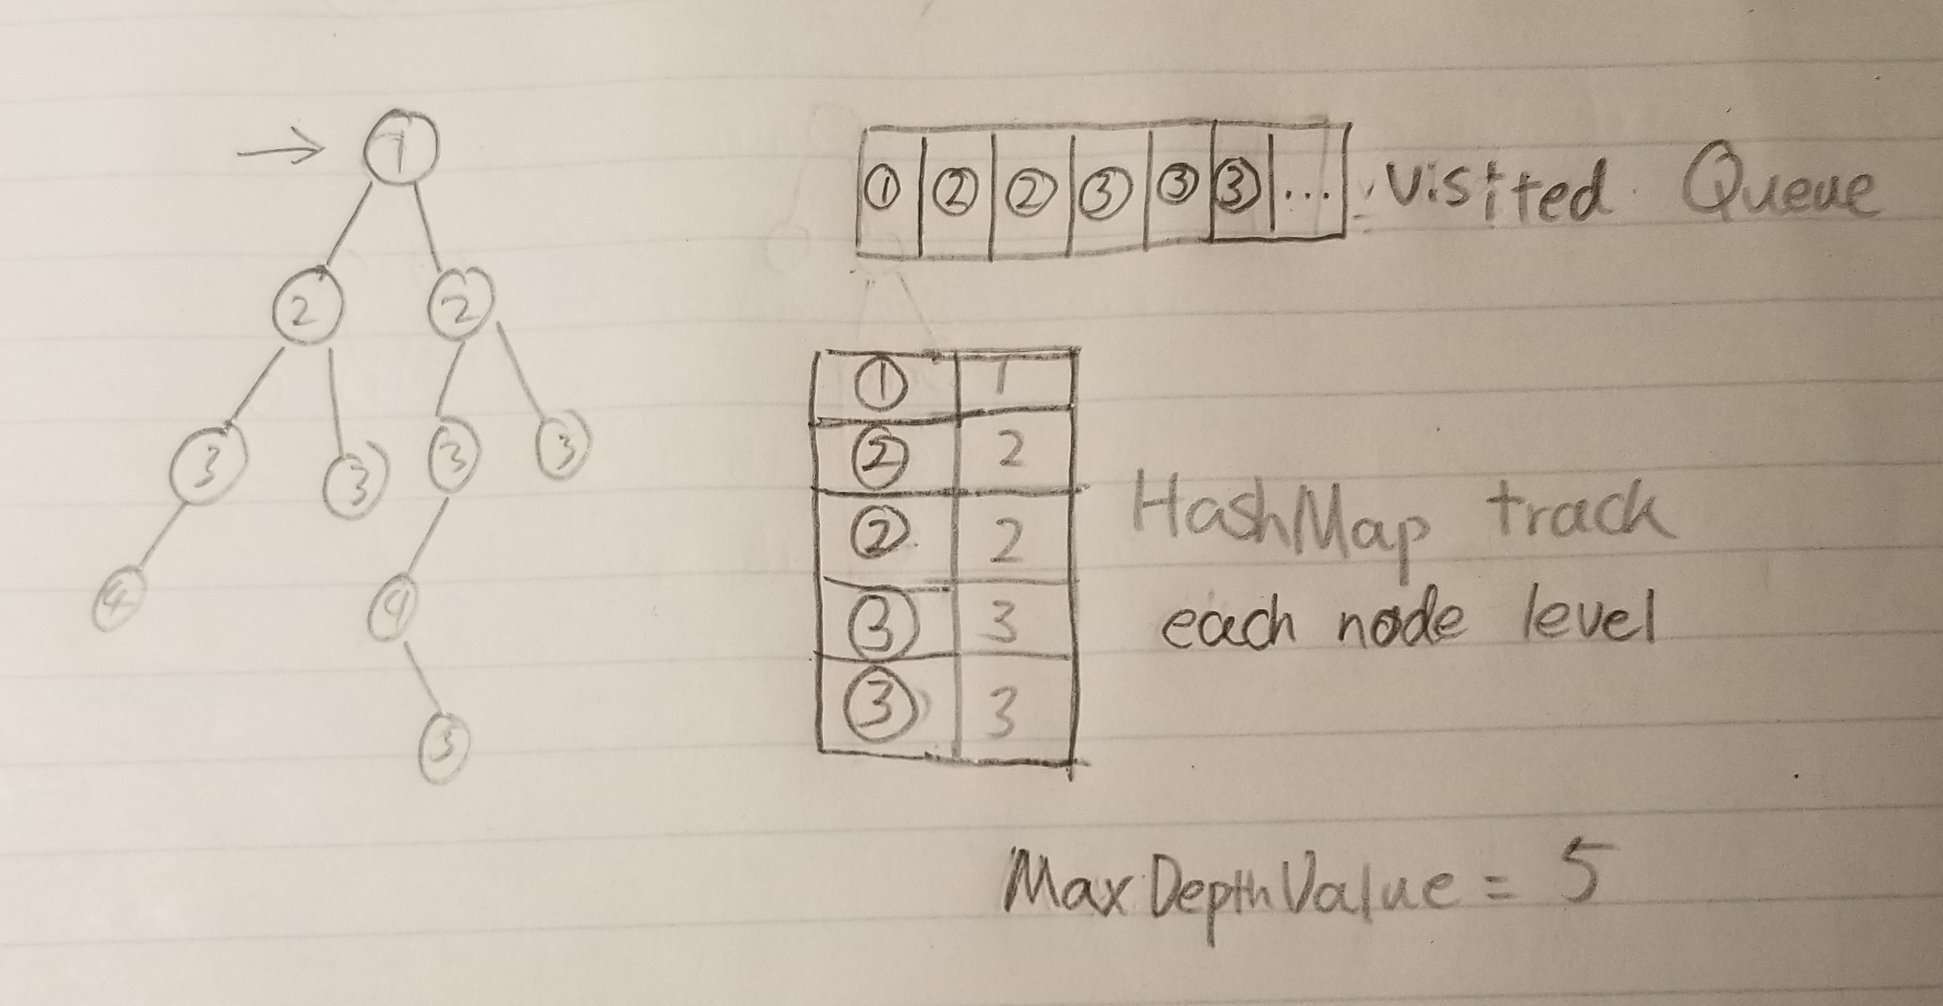 1
2 2
3 3 3 3
4 4
5
1 2 2 3 3 3 ... : Visited Queue
1 1
2 2
2 2
3 3
3 3
HashMap track
each node level
MaxDepthValue = 5